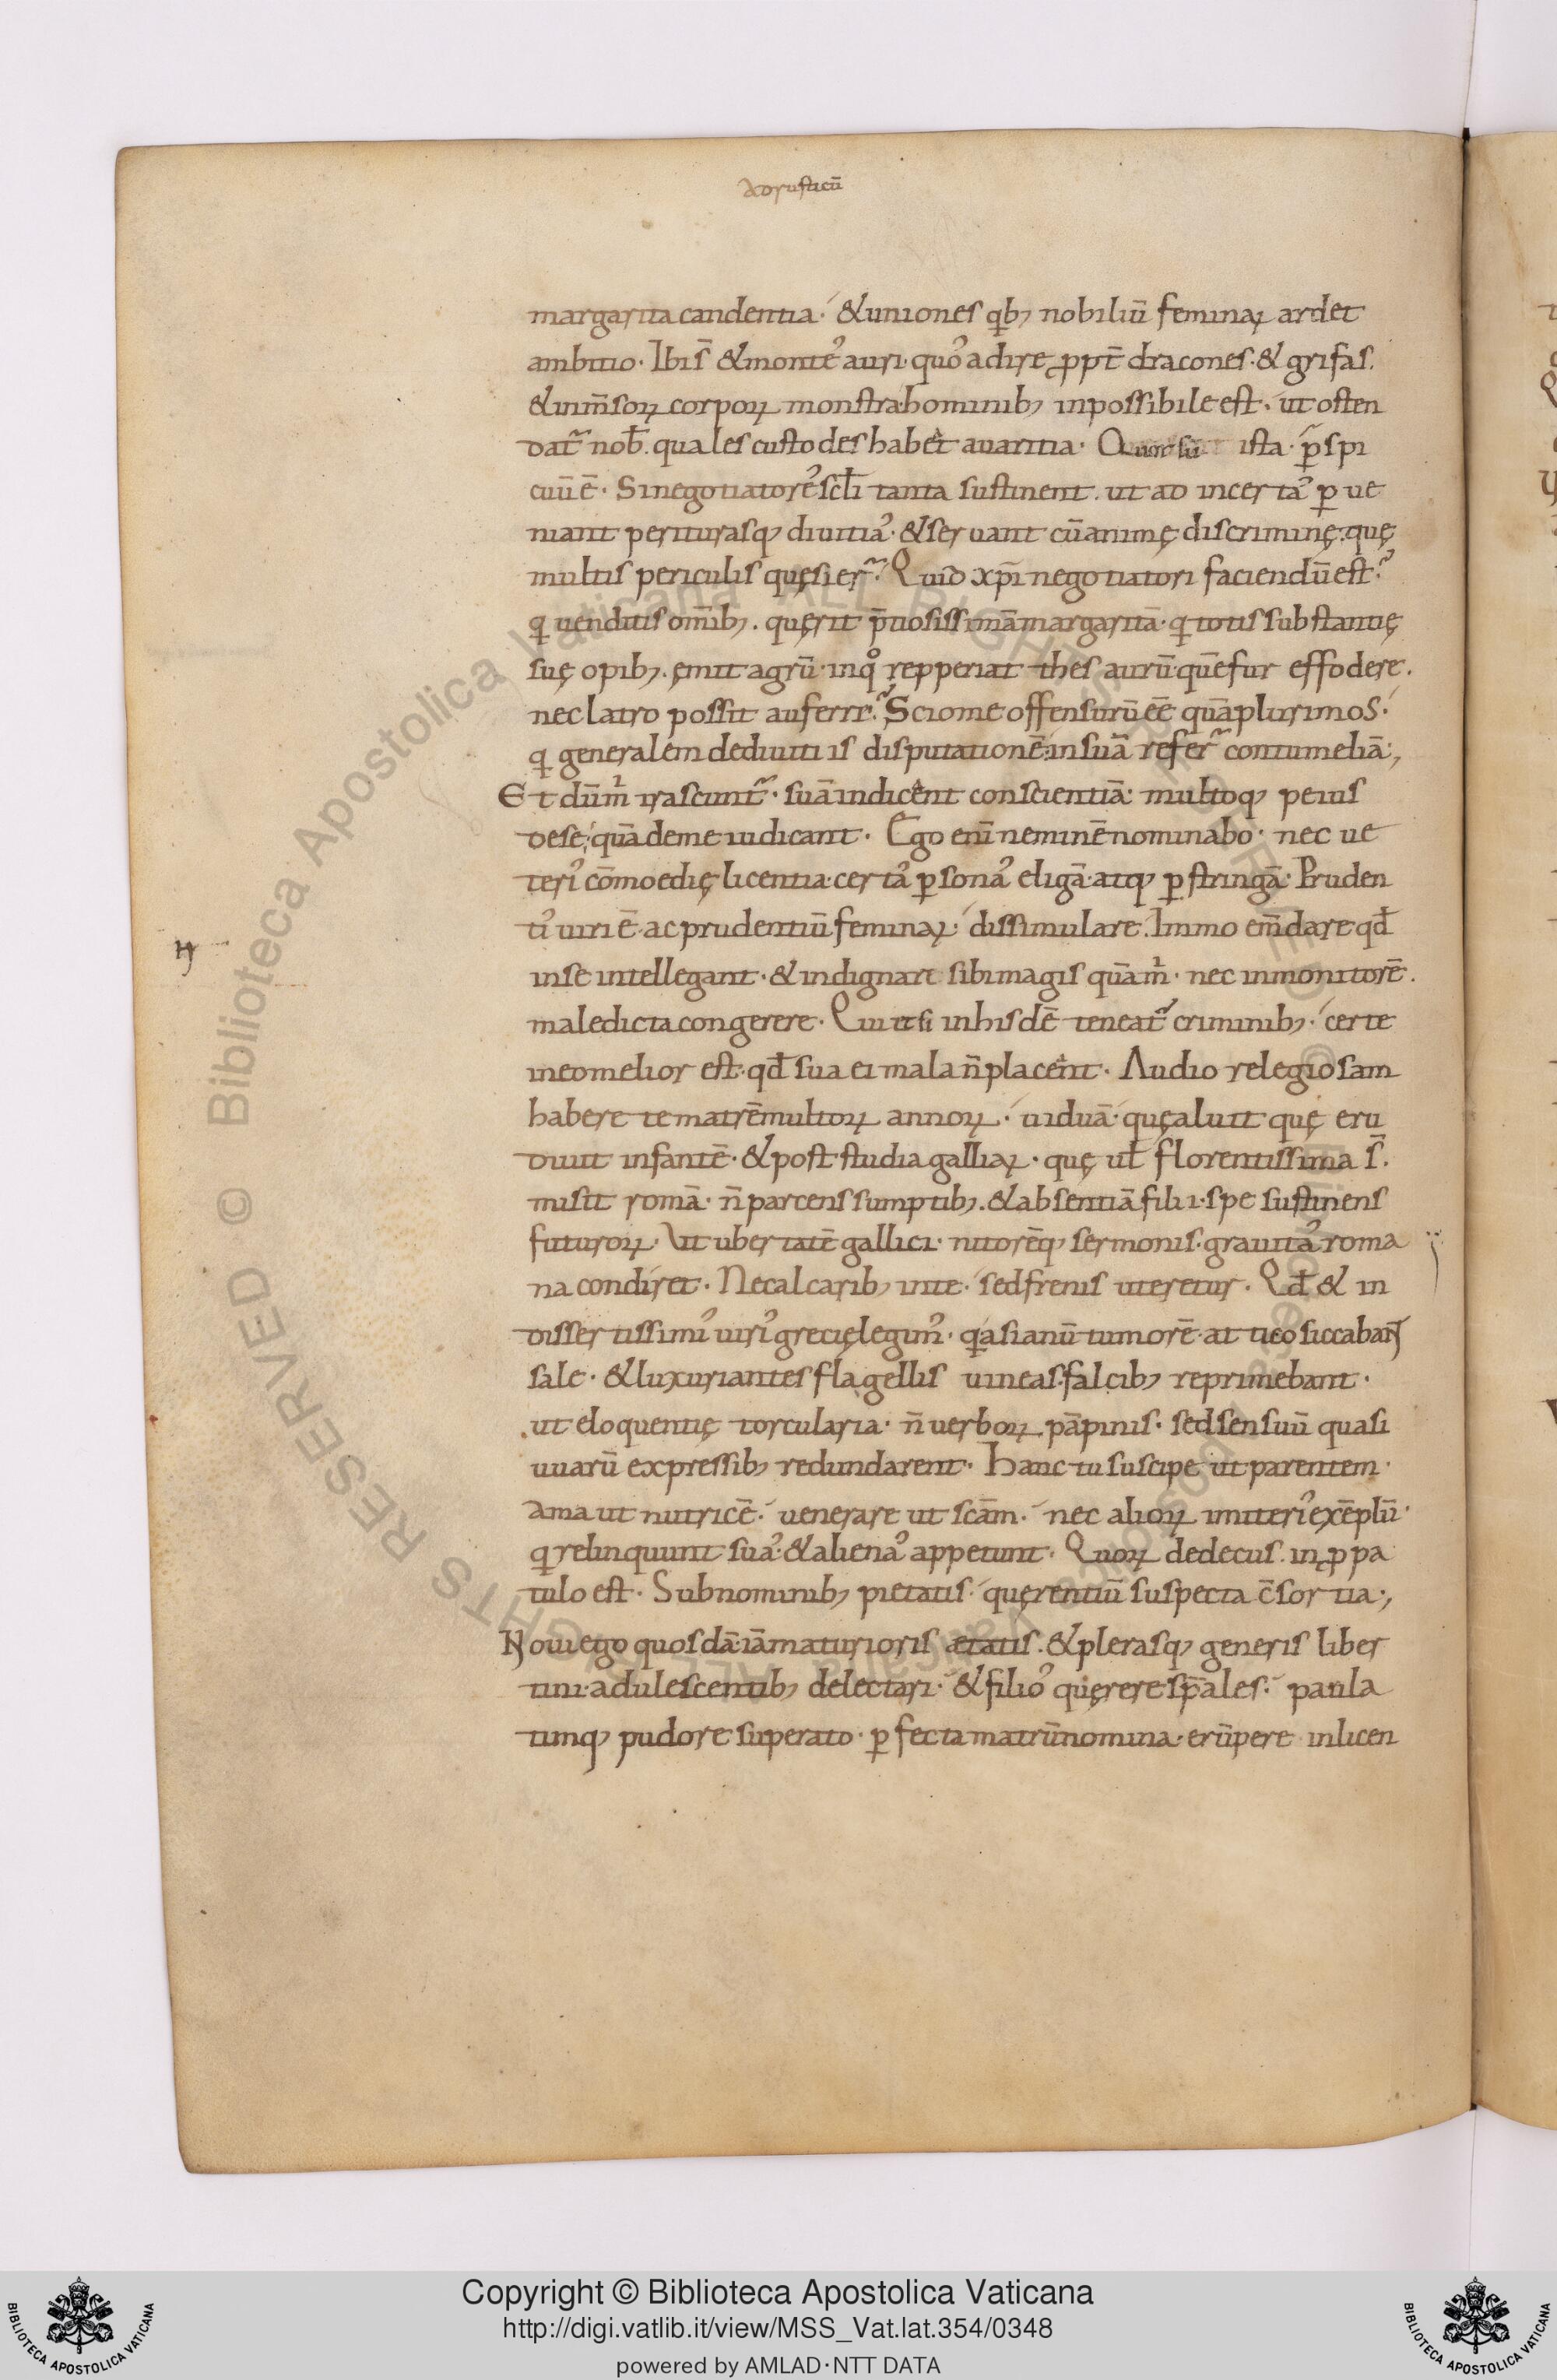 Ad rusticū
margarita candentia· & uniones qb; nobiliū feminaꝝ ardet
ambitio· Ibi s̄ & monteꝰ auri· quoꝰ adire ꝓpt̄ dracones· & grifas.
& inm̄soꝝ corpoꝝ monstra· hominib; inpossibile est· ut osten
dat᷑ nob̄. quales custodes habet auaritia· Quorsū ista· p̄spi
cuū ē· Si negotiatoreꝰ sc̄li tanta sustinent. ut ad incertaꝰ ꝑue
niant periturasq; diuitiaꝰ· & seruant cū animę discriminę· quę
multis periculis quęsier᷑· Quid xp̄i negotiatori faciendū est?
q uenditis om̄ib;. quęrit p̄tiosissimā margaritā· q totis substantię
suę opib;. ęmit agrū· in qͦ repperiat thesaurū· quē e fur effodere.
nec latro possit auferre· Scio me offensurū ēē quā plurimos·
q generalem de uitiis disputationē· in suā refer᷑ contumeliā;
Et dū m̄ irascunt᷑· suā indicent conscientiā· multoq; peius
de se· quā de me iudicant· Ego enī neminē nominabo· nec ue
teriꝰ cōmoedię licentia· certaꝰ ꝑsonaꝰ eligā· atq; ꝑstringā· Pruden
tiꝰ uiri ē· ac prudentiū feminaꝝ· dissimulare. Immo em̄dare qd̄
in se intellegant· & indignari sibi magis quā m̄· nec in monitorē.
maledicta congerere· Qui etsi in hisdē teneat᷑ criminib;· certe
in eo melior est· qd̄ sua ei mala n̄ placent· Audio relegiosam
habere te matrē multoꝝ annoꝝ· uiduā· quę aluit quę eru
diuit infantē· & post studia galliaꝝ· quę ul̄ florentissima s̄.
misit romā· n̄ parcens sumptib;. & absentiā filii· spe sustinens
futuroꝝ· Ut ubertatē gallici· nitorēq; sermonis· grauitaꝰ roma
na condiret· Nec calcarib; in te· sed frenis uteretur· Qd̄ & in
dissertissimiꝰ uiriꝰ grecię legimꝰ· q asianū tumorē· attico siccabant
sale· & luxuriantes flagellis uineas· falcib; reprimebant·
ut eloquentię torcularia· n̄ uerboꝝ pāpinis· sed sensuū quasi
uuarū expressib; redundarent· Hanc tu suscipe ut parentem·
ama ut nutricē· uenerare ut scām· nec alioꝝ imiteriꝰ exēplū·
q relinquunt suaꝰ· & alienaꝰ appetunt· Quoꝝ dedecus in ꝓpa
tulo est· Sub nominib; pietatis· quęrentiū suspecta c̄sortia;
Noui ego quosdā· iā maturioris ætatis. & plerasq; generis liber
tini· adulescentib; delectari· & filioꝰ quęrere sp̄ales· paula
timq; pudore superato· ꝑ fecta matrū nomina· erūpere in licen
Copyright © Biblioteca Apostolica Vaticana
http://digi.vatlib.it/view/MSS_Vat.lat.354/0348
powered by AMLAD·NTT DATA
BIBLIOTECA APOSTOLICA VATICANA
BIBLIOTECA APOSTOLICA VATICANA